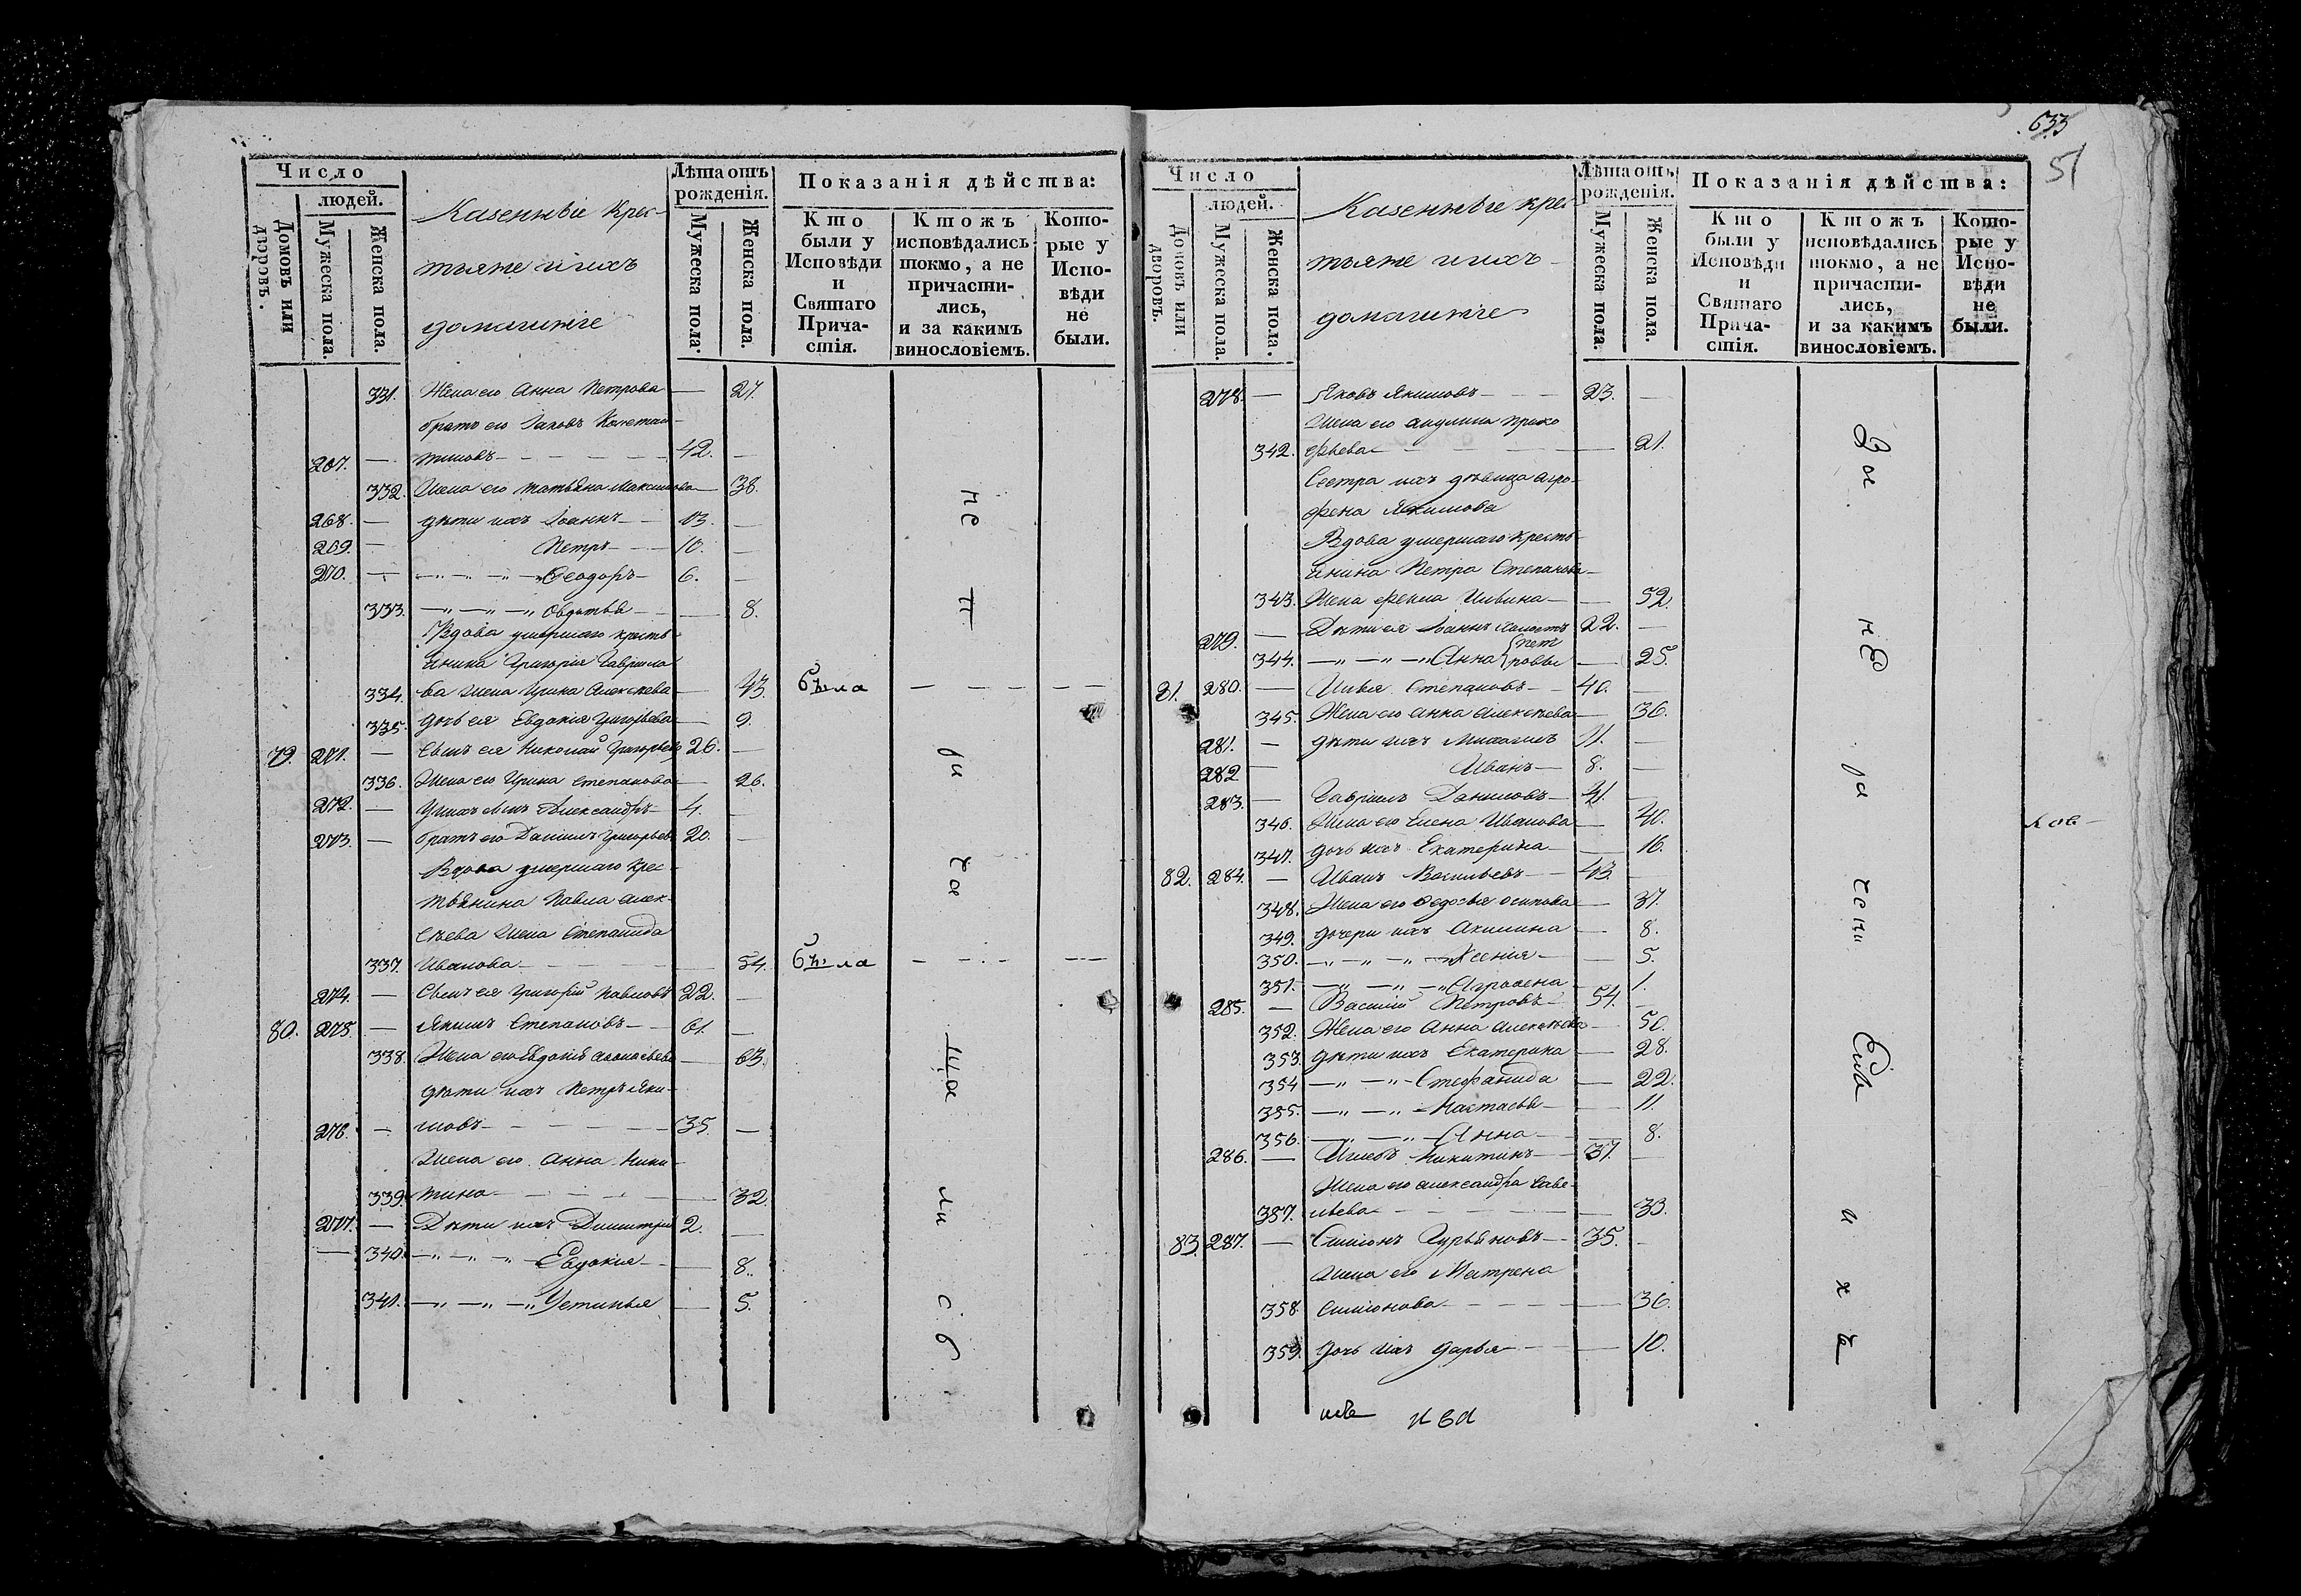 633
51
Число
людей.
Домовъ или дворовъ.
Мужеска пола.
Женска пола.
Казенные крес-
тьяне и ихъ
домашніе
Лѣта отъ рожденія.
Мужеска пола.
Женска пола.
Показанія дѣйства:
Кто были у Исповѣди и Святаго Прича-стія.
Ктожъ исповѣдались токмо, а не причасти-лись, и за какимъ винословіемъ.
Кото-рые у Испо-вѣди не были.
331. Жена его Анна Петрова — 27.
братъ его Іаковъ Констан-
267. — тиновъ 42. —
332. Жена его Татьяна Максимова — 38.
268. — дѣти ихъ Іоаннъ 13. —
269. — Петръ 10. —
270. — Ѳеодоръ 6. —
333. Овдотья — 8.
Вдова умершаго кресть-
янина Григорія Гаврило
334. ва жена Ирина Алексѣева — 43. была
335. дочь ея Евдокія Григорьева — 9.
79. 271. — Сынъ ея Николай Григорьевъ 26. —
336. Жена его Ирина Степанова — 26.
272. — у нихъ сынъ Александръ 4. —
273. — братъ его Даніилъ Григорьевъ 20. —
Вдова умершаго крес-
тьянина Павла Алек-
сѣева жена Степанида
337. Иванова — 54. была
274. — Сынъ ея Григорій Павловъ 22. —
80. 275. — Якимъ Степановъ 61. —
338. Жена его Евдокія Афонасьева — 63.
дѣти ихъ Петръ Яки-
276. — мовъ 35. —
Жена его Анна Ники-
339. тина — 32.
277. — Дѣти ихъ Димитрій 2. —
340. Евдокія — 8.
341. Устинья — 5.
не
п
ри
ча
ща
ли
с б
Число
людей.
Домовъ или дворовъ.
Мужеска пола.
Женска пола.
Казенные крес
тьяне и ихъ
домашніе
Лѣта отъ рожденія.
Мужеска пола.
Женска пола.
Показанія дѣйства:
Кто были у Исповѣди и Святаго Прича-стія.
Ктожъ исповѣдались токмо, а не причасти-лись, и за какимъ винословіемъ.
Кото-рые у Испо-вѣди не были.
278. — Яковъ Якимовъ 23. —
Жена его Акулина Проко
342. фьева — 21.
Сестра ихъ дѣвица Агро-
фена Якимова
Вдова умершаго кресть-
янина Петра Степанова
343. Жена Фекла Ильина — 52.
279. — Дѣти ея Іоаннъ холостъ 22. —
344. Анна Пет ровы — 25.
81. 280. — Илья Степановъ 40. —
345. Жена его Анна Алексѣева — 36.
281. — дѣти ихъ Михаилъ 11. —
282 — Иванъ 8. —
283. — Гавріилъ Даниловъ 41. —
346. Жена его Елена Иванова — 40.
347. дочь ихъ Екатерина — 16.
82. 284. — Иванъ Васильевъ 43. —
348. Жена его Федосья Осипова — 37.
349. дочери ихъ Акилина — 8.
350. Ксенія — 5.
351. Аграфена — 1.
285. — Василій Петровъ 54. —
352. Жена его Анна Алексѣева — 50.
353. дѣти ихъ Екатерина — 28.
354 Стефанида — 22.
355. Настасья — 11.
356. Анна — 8.
286. — Никитинъ 37. —
Жена его Александра Саве-
357. льева — 33.
83. 287. — Симіонъ Гурьяновъ 35. —
Жена его Матрена
358. Симіонова — 36.
359. дочь ихъ Дарья — 10.
За
не
ра
чені
емъ
и
х
ъ